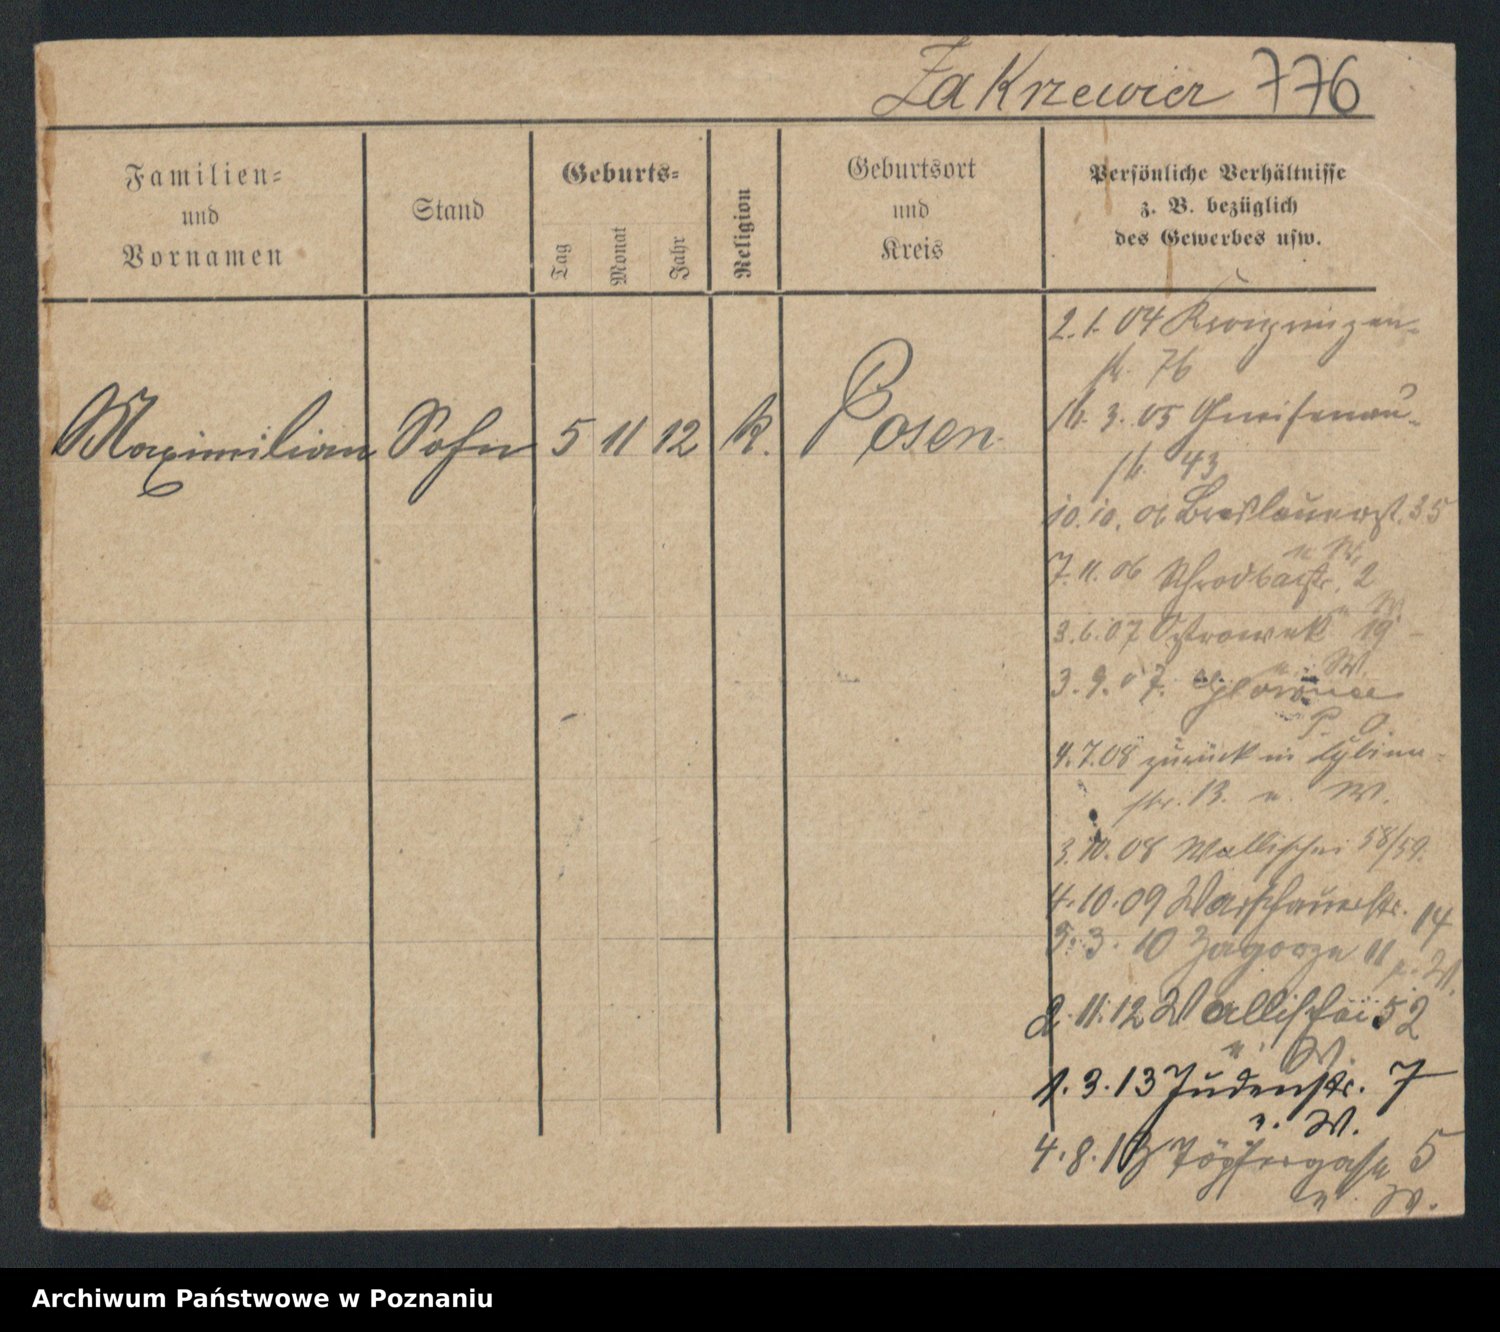 Zakrzewicz 776
Familien=
und
Vornamen
Stand
Geburts=
Tag
Monat
Jahr
Religion
Geburtsort
und
Kreis
Persönliche Verhältnisse
z. B. bezüglich
des Gewerbes usw.
Maximilian Sohn 5 11 12 k. Posen
2.1.04 Kronprinzen-
str. 76
16.3.05 Gneisenau-
str. 43
10.10.06 Breslauerst. 35
u W.
7.11.06 Schrodkastr. 2
u W.
3.6.07 Ostrowek 19
u. W.
3.9.07.
P. O.
4.7.08 zurück in Cybina-
str. 13. u. W.
3.10.08 Wallischei 58/59.
4.10.09 Warschauerstr. 14
3.3.10 Zagorze 11
p. W.
2.11.12 Wallischei 52
u. W.
1.3.13 Judenstr. 7
u. W.
4.8.13 Töpfergasse 5
u. W.
Archiwum Państwowe w Poznaniu